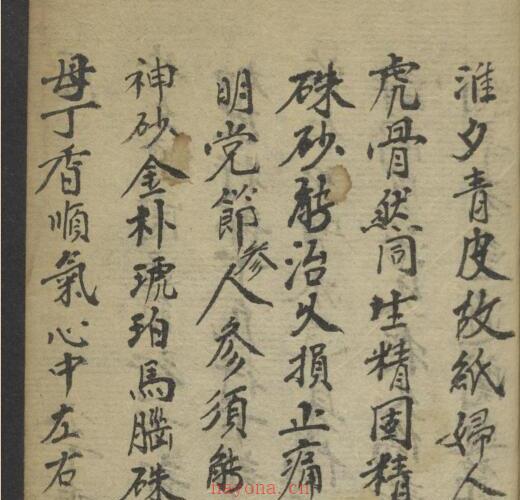 淮夕青皮故紙婦人
虎骨然同生精固精
硃砂能治久損止痛
明党節參人參須能
神砂金朴琥珀馬腦硃
母丁香順氣心中左右
nayona.cn